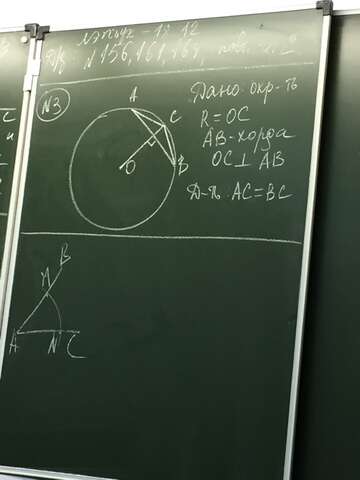 Д/З: N 156, 161, 164,
N3
Дано: окр-ть
R = OC
AB - хорда
OC ⊥ AB
Д-ть: AC = BC
A
C
B
O
B
M
A
N
C